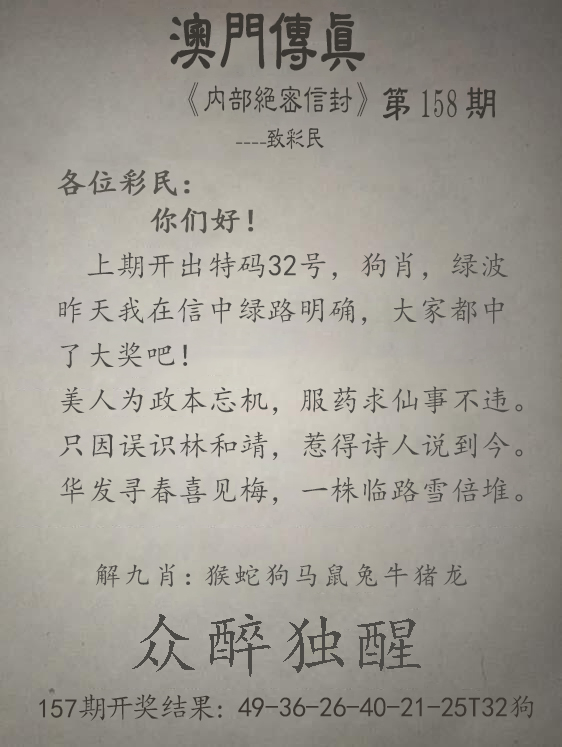 澳門傳真
《内部絕密信封》第158期
----致彩民
各位彩民：
你们好！
上期开出特码32号，狗肖，绿波
昨天我在信中绿路明确，大家都中
了大奖吧！
美人为政本忘机，服药求仙事不违。
只因误识林和靖，惹得诗人说到今。
华发寻春喜见梅，一株临路雪倍堆。
解九肖：猴蛇狗马鼠兔牛猪龙
众醉独醒
157期开奖结果：49-36-26-40-21-25T32狗